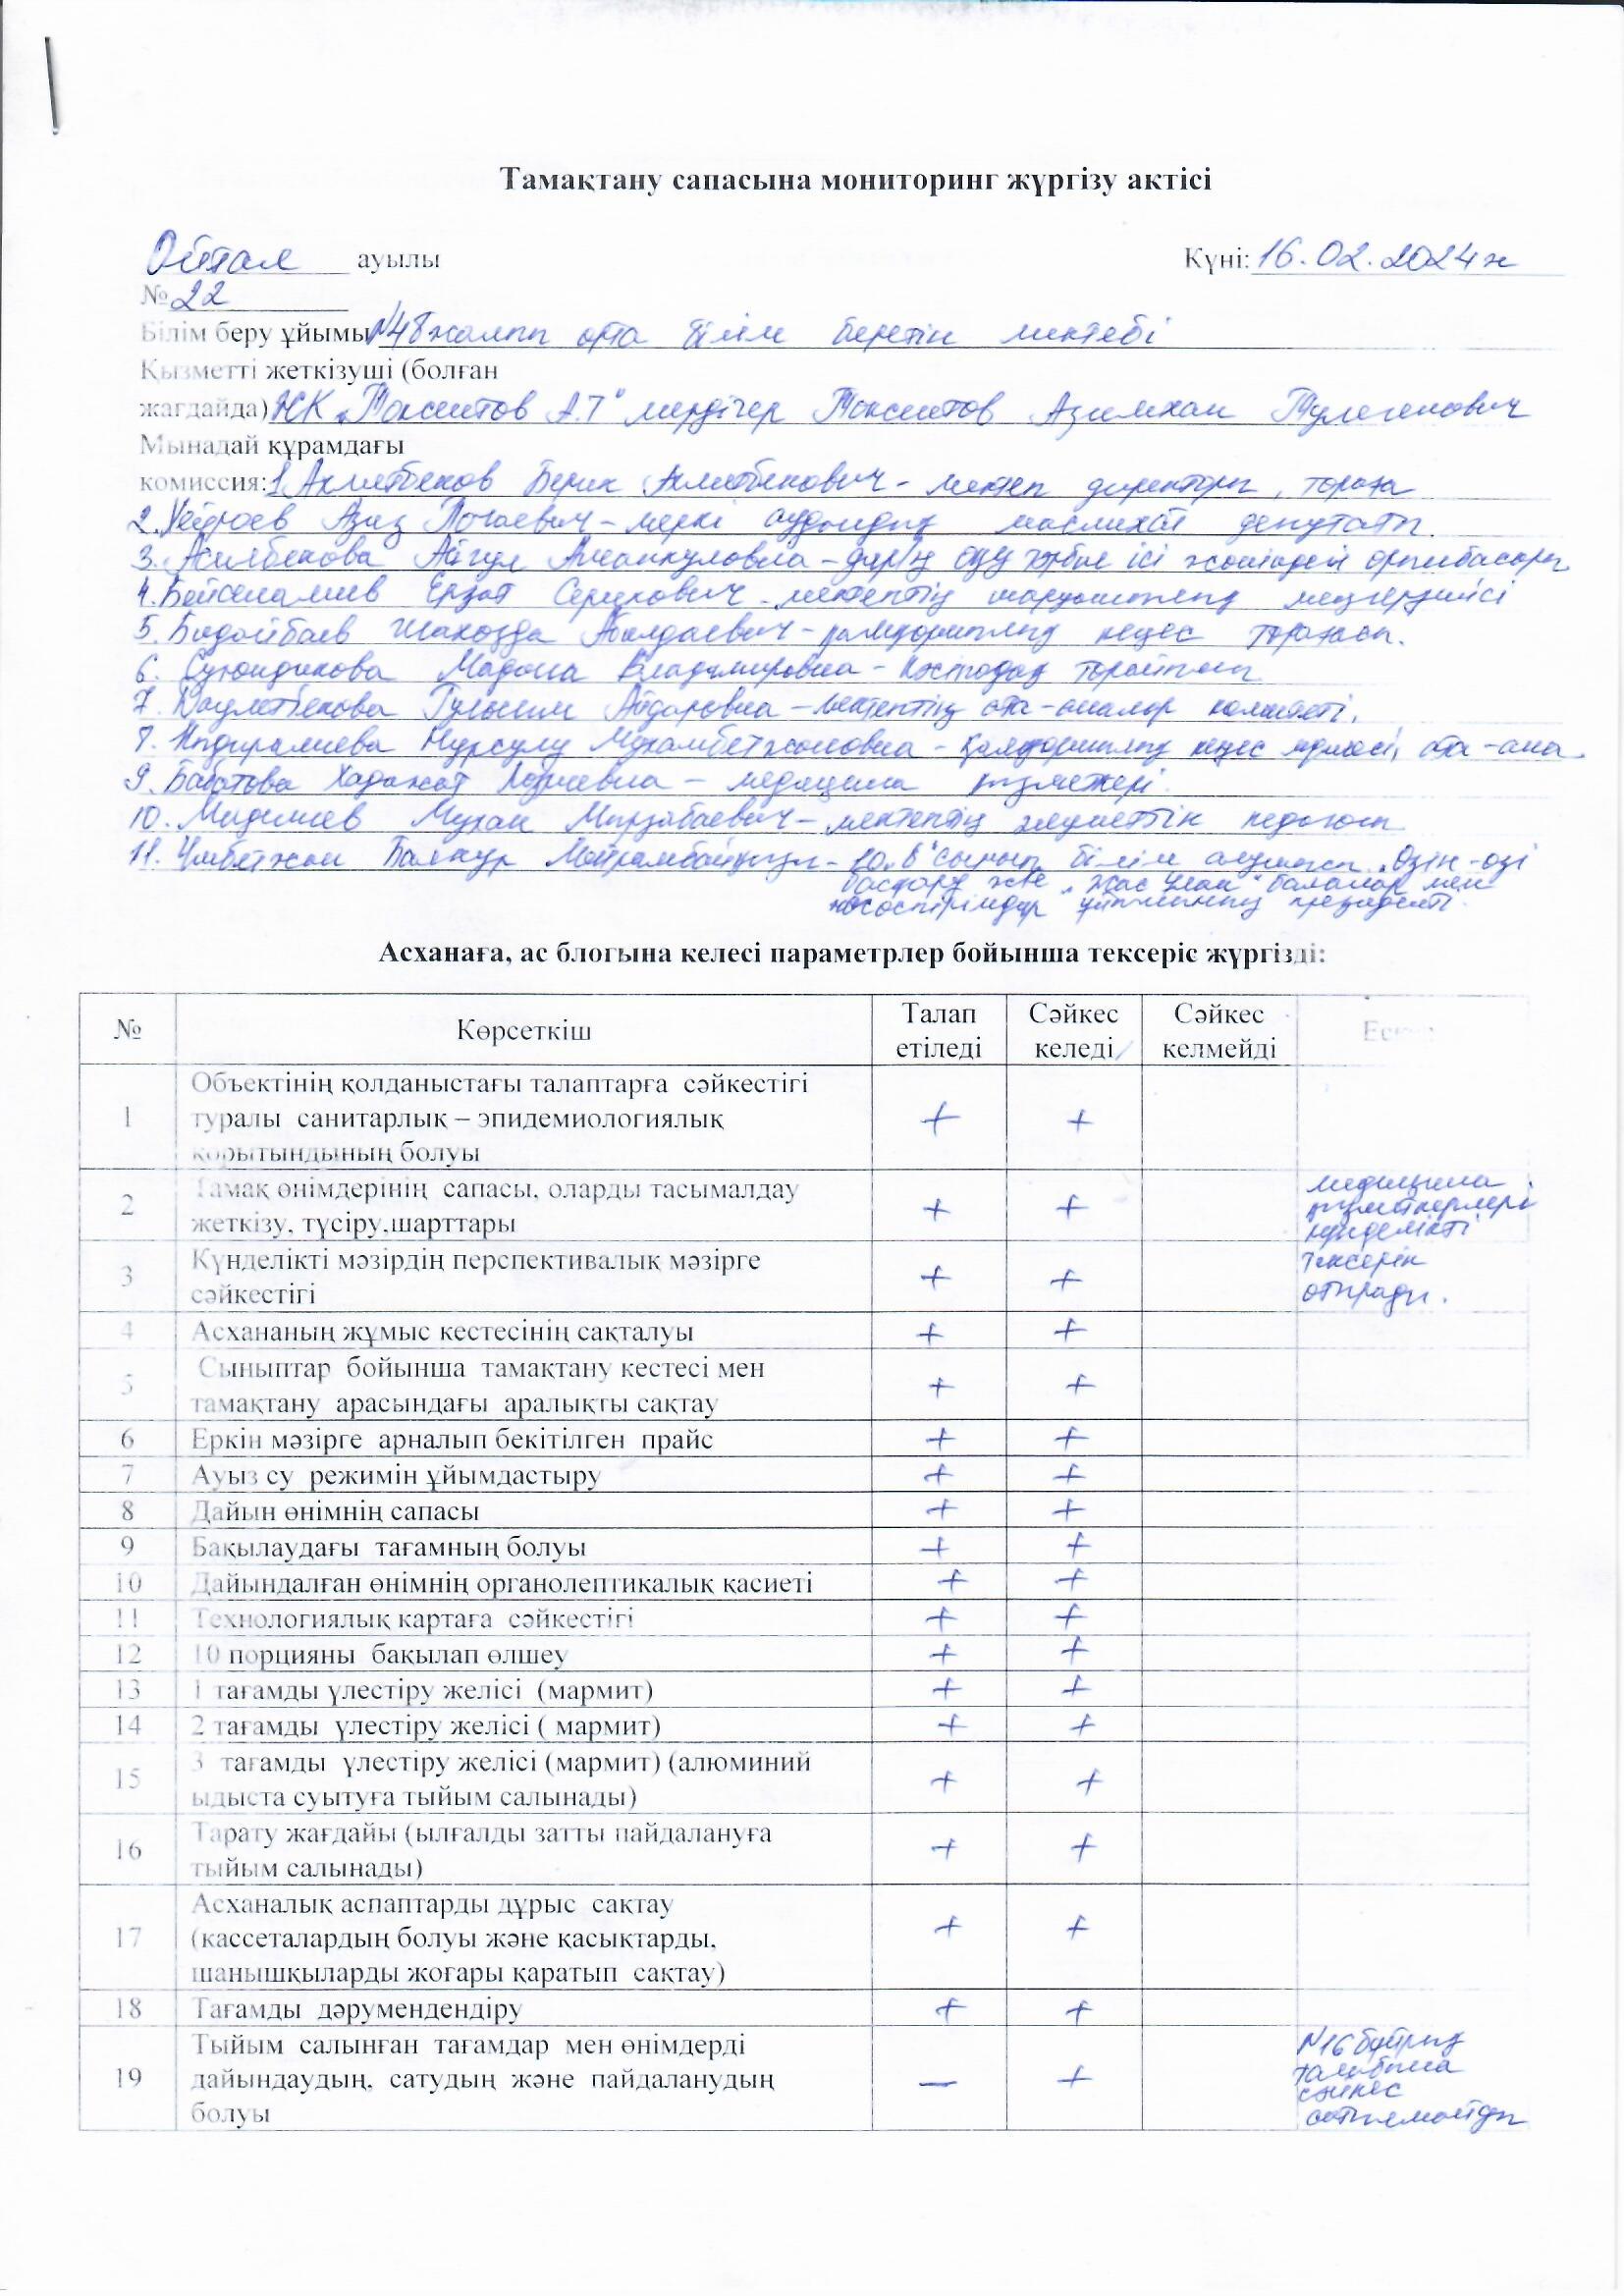 Тамақтану сапасына мониторинг жүргізу актісі
Ойтал ауылы Күні: 16.02.2024ж
№ 22
Білім беру ұйымы №48 жалпы орта білім беретін мектебі
Қызметті жеткізуші (болған
жағдайда) ЖК "Токсеитов А.Т" мердігер Токсеитов Азимхан Тулегенович
Мынадай құрамдағы
комиссия: 1. Ахметбеков Берик Ахметбекович - мектеп директоры, төраға
2. Азиз - меркі аудандық маслихат депутаты.
3. Асилбекова Айгул Аманкуловна - дир-ң оқу тәрбие ісі жөніндегі орынбасары
4. Ерзат Серикович - мектептің шаруашылық меңгерушісі
5. Шакозда - қамқоршылық кеңес төрағасы.
6. Мадина Владимировна - кәсіподақ төрайымы
7. Даулетбекова Гулсим Айдаровна - мектептің ата-аналар комитеті.
8. Нурсулу Мухамбетжоновна - қамқоршылық кеңес мүшесі, ата-ана
9. Бабатова Хадижат - медицина қызметкері.
10. Мадимев Мухан Мырзабаевич - мектептің әлеуметтік педагогы
11. Умбетжан Балжур Мейрамбайқызы - 10 "б" сынып білім алушысы, Өзін-өзі
басқару және "Жас ұлан" балалар мен
жасөспірімдер ұйымының президенті.
Асханаға, ас блогына келесі параметрлер бойынша тексеріс жүргізді:
№ Көрсеткіш Талап етіледі Сәйкес келеді Сәйкес келмейді
1 Объектінің қолданыстағы талаптарға сәйкестігі туралы санитарлық – эпидемиологиялық қорытындының болуы + +
2 Тамақ өнімдерінің сапасы, оларды тасымалдау жеткізу, түсіру,шарттары + + медицина қызметкерлері күнделікті
3 Күнделікті мәзірдің перспективалық мәзірге сәйкестігі + + тексеріп отырады.
4 Асхананың жұмыс кестесінің сақталуы + +
5 Сыныптар бойынша тамақтану кестесі мен тамақтану арасындағы аралықты сақтау + +
6 Еркін мәзірге арналып бекітілген прайс + +
7 Ауыз су режимін ұйымдастыру + +
8 Дайын өнімнің сапасы + +
9 Бақылаудағы тағамның болуы + +
10 Дайындалған өнімнің органолептикалық қасиеті + +
11 Технологиялық картаға сәйкестігі + +
12 10 порцияны бақылап өлшеу + +
13 1 тағамды үлестіру желісі (мармит) + +
14 2 тағамды үлестіру желісі ( мармит) + +
15 3 тағамды үлестіру желісі (мармит) (алюминий ыдыста суытуға тыйым салынады) + +
16 Тарату жағдайы (ылғалды затты пайдалануға тыйым салынады) + +
17 Асханалық аспаптарды дұрыс сақтау (кассеталардың болуы және қасықтарды, шанышқыларды жоғары қаратып сақтау) + +
18 Тағамды дәрумендендіру + +
19 Тыйым салынған тағамдар мен өнімдерді дайындаудың, сатудың және пайдаланудың болуы — + №16 бұйрық талабына сәйкес сатылмайды